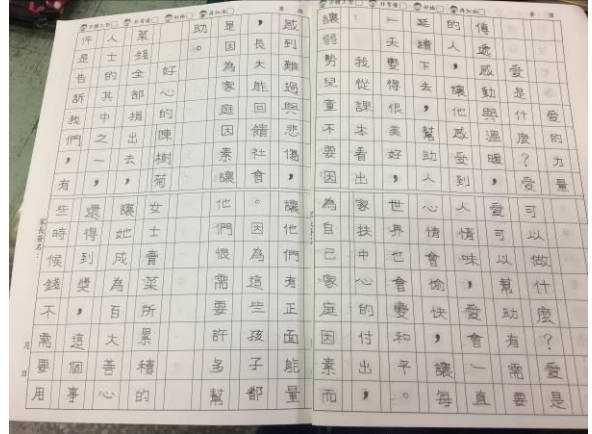 愛的力量
愛是什麼？愛可以做什麼？愛是
傳遞感動與溫暖，愛可以幫助有需要
的人，讓他感受到人情味，愛會一直
延續下去，幫助人心情會愉快，讓每
一天變得很美好，世界也會變和平。
我從課本看出，家扶中心的付出，
讓弱勢兒童不要因為自己家庭因素而
感到難過與悲傷，讓他們有正面能量
，長大能回饋社會。因為這些孩子都
是因為家庭因素讓他們很需要許多幫
助。
好心的陳樹菊女士賣菜所累積的
菜錢全部捐出去，讓她成為百大善心
人士的其中之一，還得到獎，這個事
件是告訴我們，有些時候錢不需要用
家長簽名：
月
日